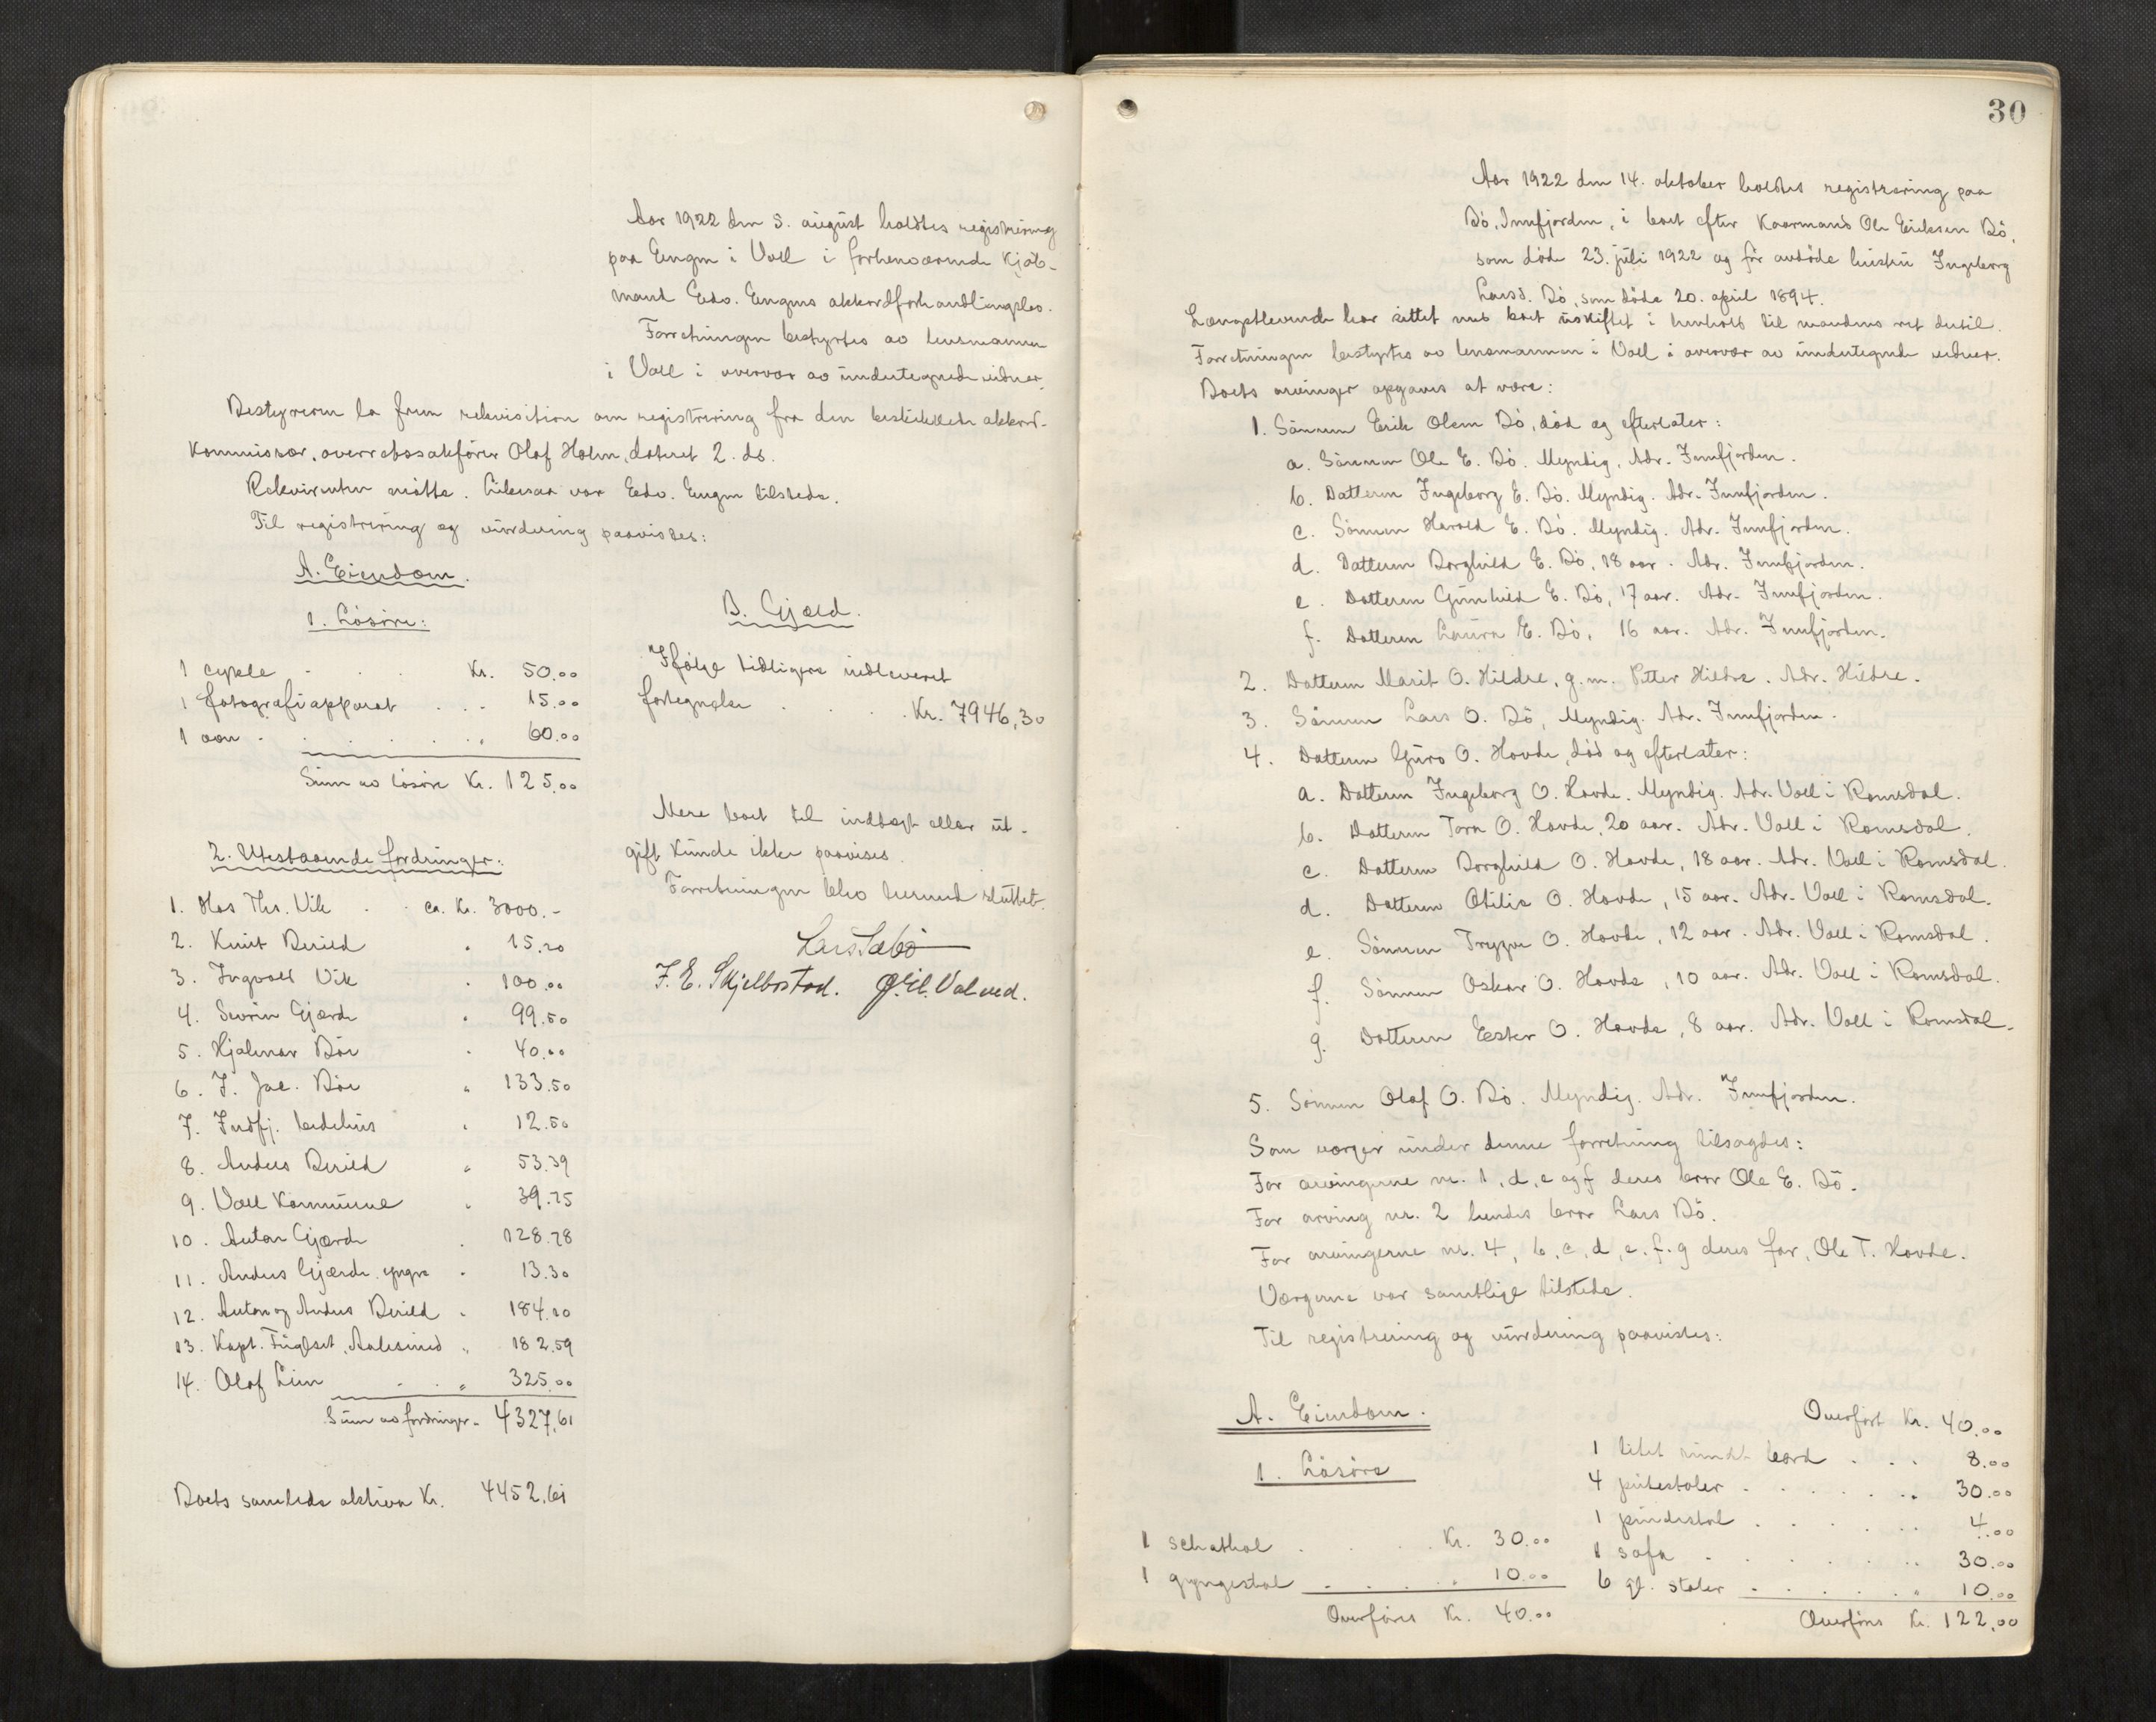 Aar 1922 den 5. august holdtes registrering
paa Engen i Voll i forhenværende kjøb-
mand Edv. Engens akkordforhandlingsbo.
Forretningen bestyrtes av lensmannen
i Voll i overvær av undertegnede vidner.
Bestyreren la frem rekvisition om registrering fra den beskikkede akkord-
kommissær, overretssakfører Olaf Holm, dateret 2. ds.
Rekvirenten møtte. Likesaa var Edv. Engen tilstede.
Til registrering og vurdering paavistes:
A. Eiendom.
1. Løsøre:
1 cykle . . . Kr. 50.00
1 fotografiapparat . . . 15.00
1 aar . . . . . " 60.00
Sum av løsøre Kr. 125.00
2. Utestaaende fordringer:
1. Hos Ths. Vik . . ca. Kr. 3000.-
2. Knut Berild " 15.20
3. Ingvald Vik " 100.00
4. Sevrin Gjærde " 99.50
5. Hjalmar Bøe " 40.00
6. J. Jac. Bøe " 133.50
7. Indfj. bedehus " 12.50
8. Anders Berild " 53.39
9. Voll kommune " 39.75
10. Anton Gjærde " 128.78
11. Anders Gjærde yngre " 13.30
12. Anton og Anders Berild " 184.10
13. Kapt. Fuglset, Aalesund " 182.59
14. Olaf Lien . . " 325.00
Sum av fordringer " 4327,61
Boets samlede aktiva Kr. 4452,61
B. Gjæld.
Ifølge tidligere indleveret
fortegnelse . . . . Kr. 7946,30
Mere boet til indtægt eller ut-
gift kunde ikke paavises.
Forretningen blev hermed sluttet.
Lars Sæbø
J. E. Skjelbostad. O. El. Valved.
30
Aar 1922 den 14. oktober holdtes registrering paa
Bø, Innfjorden, i boet efter kaarmand Ole Eriksen Bø,
som døde 23. juli 1922 og før avdøde hustru Ingeborg
Larsd. Bø, som døde 20. april 1894.
Længstlevende har sittet med boet uskiftet i henhold til mandens ret dertil.
Forretningen bestyrtes av lensmannen i Voll i overvær av undertegnede vidner.
Boets arvinger opgaves at være:
1. Sønnen Erik Olsen Bø, død og efterlater:
a. Sønnen Ole E. Bø. Myndig. Adr. Innfjorden.
b. Datteren Ingeborg E. Bø. Myndig. Adr. Innfjorden.
c. Sønnen Harald E. Bø. Myndig. Adr. Innfjorden.
d. Datteren Borghild E. Bø, 18 aar. Adr. Innfjorden.
e. Datteren Gunhild E. Bø, 17 aar. Adr. Innfjorden.
f. Datteren Laura E. Bø, 16 aar. Adr. Innfjorden.
2. Datteren Marit O. Hildre, g.m. Petter Hildre. Adr. Hildre.
3. Sønnen Lars O. Bø, Myndig. Adr. Innfjorden.
4. Datteren Guro O. Hovde, død og efterlater:
a. Datteren Ingeborg O. Hovde. Myndig. Adr. Voll i Romsdal.
b. Datteren Tora O. Hovde, 20 aar. Adr. Voll i Romsdal.
c. Datteren Borghild O. Hovde, 18 aar. Adr. Voll i Romsdal.
d. Datteren Otilie O. Hovde, 15 aar. Adr. Voll i Romsdal.
e. Sønnen Trygve O. Hovde, 12 aar. Adr. Voll i Romsdal.
f. Sønnen Oskar O. Hovde, 10 aar. Adr. Voll i Romsdal.
g. Datteren Ester O. Hovde, 8 aar. Adr. Voll i Romsdal.
5. Sønnen Olaf O. Bø. Myndig. Adr. Innfjorden.
Som verger under denne forretning tilsagdes:
For arvingerne nr. 1, d, e og f deres bror Ole E. Bø.
For arving nr. 2 hendes bror Lars Bø.
For arvingerne nr. 4, b, c, d, e, f, g deres far, Ole T. Hovde.
Vergerne var samtlige tilstede.
Til registrering og vurdering paavistes:
A. Eiendom.
1. Løsøre
1 schathol . . . . Kr. 30.00
1 gyngestol . . . . " 10.00
Overføres Kr. 40.00
Overført Kr. 40.00
1 litet rundt bord . . . 8.00
4 putestoler . . . . . " 30.00
1 pindestol . . . . . 4.00
1 sofa . . . . . . " 30.00
6 gl. stoler . . . . . " 10.00
Overføres Kr. 122,00